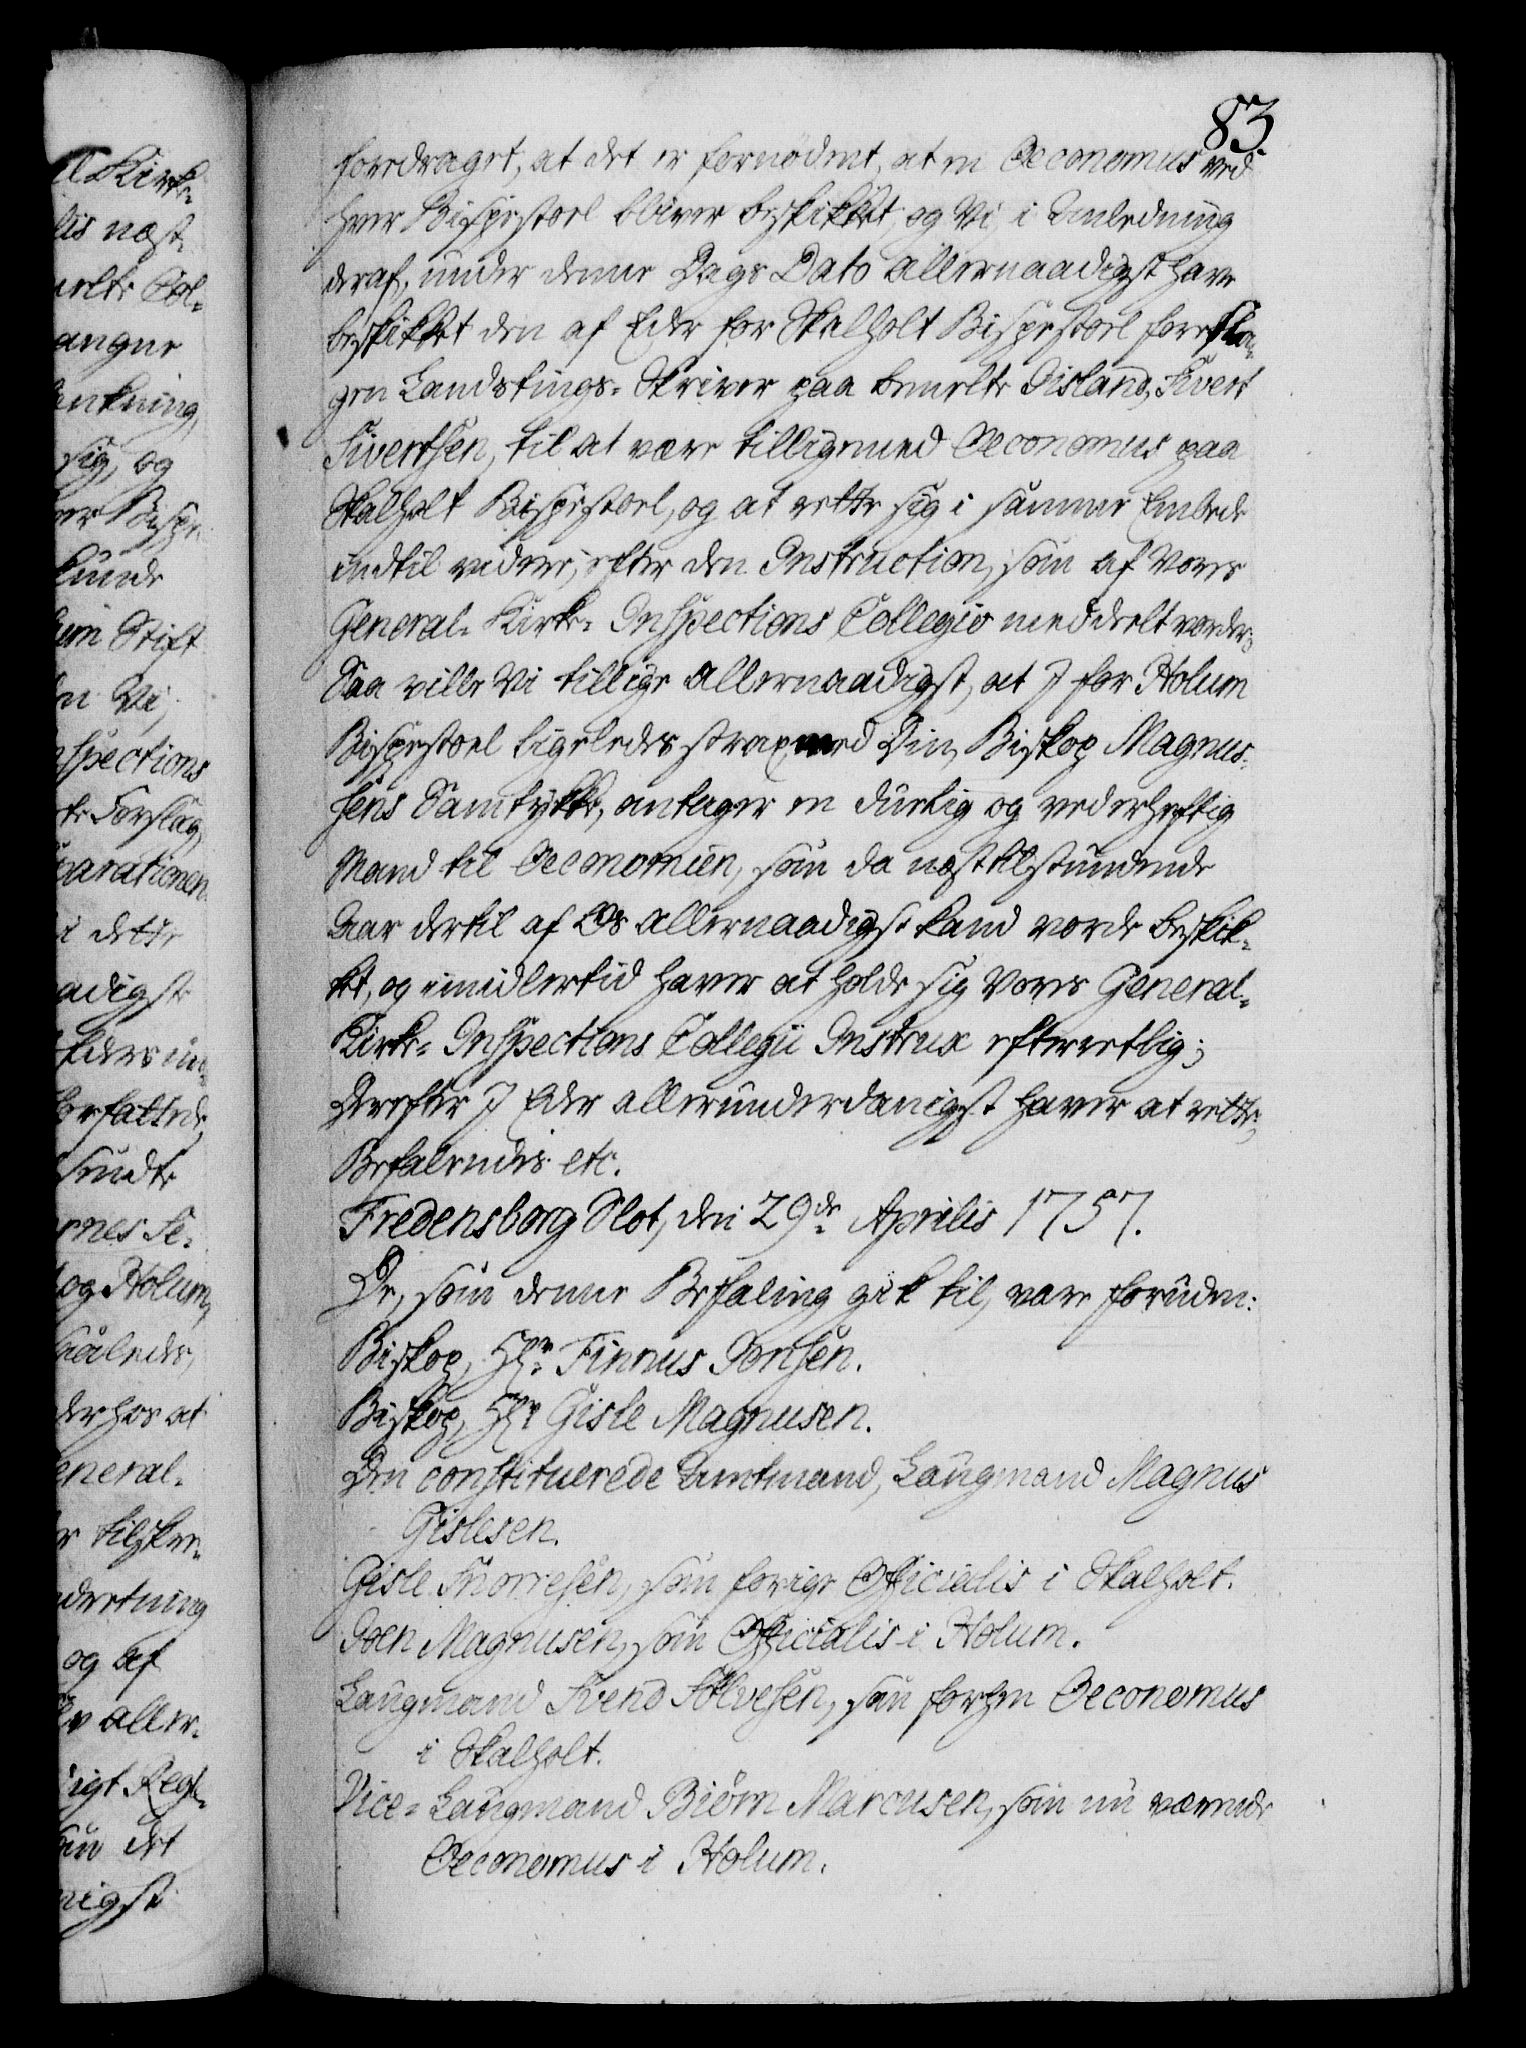 83.
foredraget, at det er fornödent, at en Oeconomus ved
hver Bispestoel bliver beskikket, og Vi, i Anledning
deraf, under denne Dags Dato allernaadigst have
beskikket den af Eder for Skalholt Bispestoel foresla-
gen Landstings-Skriver paa bemelte Iisland, Sivert
Sivertsen, til at være tilligemed Oeconomus paa
Skalholt Bispestoel, og at rette sig i samme Embede
indtil videre, efter den Instruction, som af Vores
General-Kirke-Inspections Collegio meddeelt vorder;
Saa ville Vi tillige allernaadigst, at I for Holum
Bispestoel ligeledes strax med Din, Biskop Magnus-
sens Samtykke, antager en duelig og vederheftig
Mand til Oeconomien, som da næsttilstundende
Aar dertil af Os allernaadigst kand vorde beskik-
ket, og imidlertid haver at holde sig Vores General-
Kirke-Inspections Collegii Instrux efterretlig;
Derefter I Eder allerunderdanigst haver at rette,
Befalendes etc.
Fredensborg Slot, den 29de Aprilis 1757.
De, som denne Befaling gik til, vare foruden:
Biskop, Hr. Finnus Jonsen.
Biskop, Hr. Gisle Magnusen.
Den constituerede Amtmand, Laugmand Magnus
Gislesen.
Gisle Snorresen, som forige Officialis i Skalholt.
Joen Magnusen, som Officialis i Holum.
Laugmand Svend Sölvesen, som forhen Oeconomus
i Skalholt.
Vice-Laugmand Biörn Marcusen, som nu værende
Oeconomus i Holum.